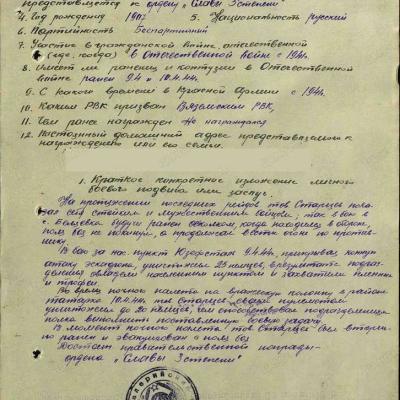 представляется к ордену „Славы 3 степени"
4. Год рождения 1907 5. Национальность русский
6. Партийность Беспартийный
7. Участие в гражданской войне, отечественной
(где, когда) в Отечественной войне с 1941.
8. Имеет ли ранения и контузии в Отечественной
войне ранен 9.4 и 10.4.44.
9. С какого времени в Красной Армии с 1941.
10. Каким РВК призван Вяземским РВК,
11. Чем ранее награжден Не награждался
12. Постоянный домашний адрес представляемого к
награждению или его семьи.
1. Краткое конкретное изложение личного
боевого подвига или заслуг.
На протяжении последних рейдов тов Старцев пока
зал себя стойким и мужественным бойцом, так в бою в
с. будучи ранен осколком, когда находился в
поля боя не покинул, а продолжал вести огонь по против-
нику.
В бою за нас пункт 9.4.44, прикрывая конную
атаку эскадрона, уничтожил 25 немцев, в результате подраз-
деления овладели населенным пунктом и захватили пленных
и трофеи.
Во время ночного налета на вражескую колонну в районе
Татарка 10.4.44 тов Старцев своим пулеметом
уничтожил до 20 немцев, чем способствовал подразделениям
полка выполнить поставленную боевую задачу.
В момент ночного налета тов Старцев был вторич-
но ранен и эвакуирован с поля боя.
Достоин правительственной награды-
ордена „Славы 3 степени"